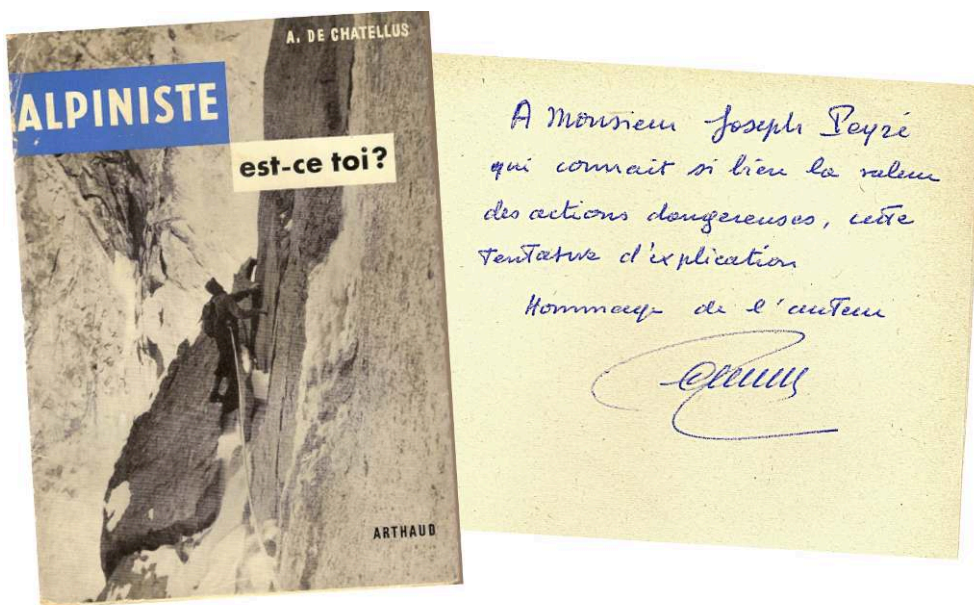 A. DE CHATELLUS
ALPINISTE
est-ce toi?
ARTHAUD
A Monsieur Joseph Peyré
qui connait si bien la valeur
des actions dangereuses, cette
tentative d'explication
Hommage de l'auteur